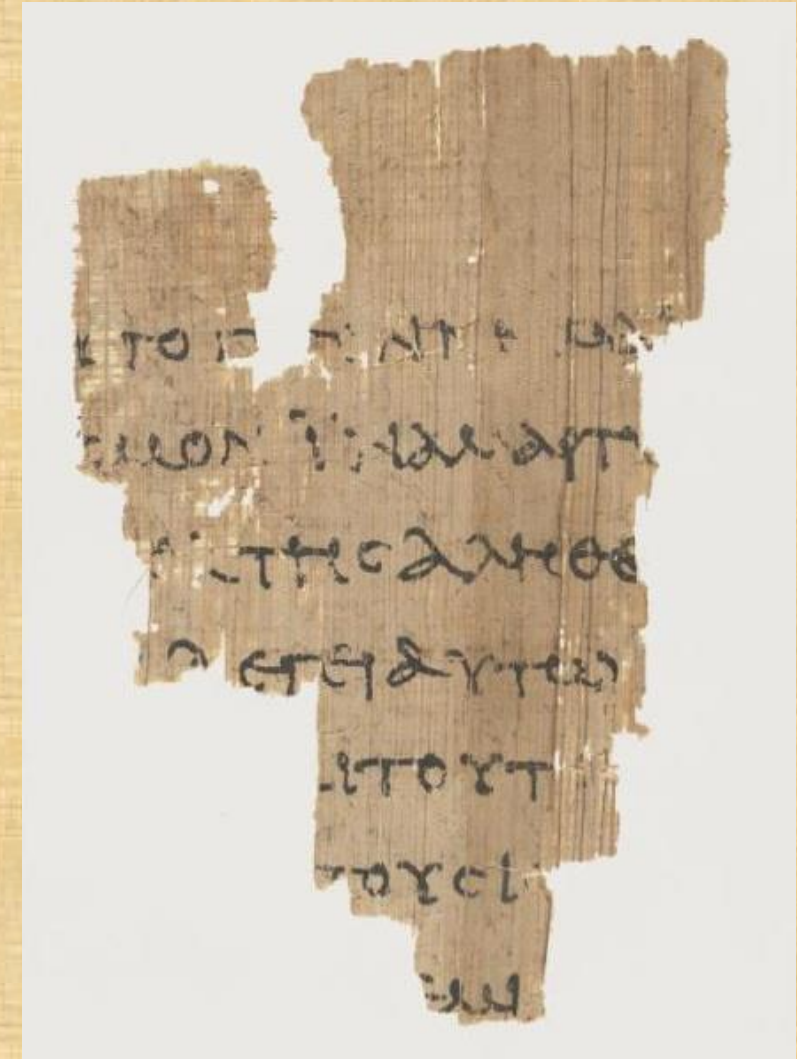 ΥΤΟ Γ ΓΕΝΝΗΜΑΙ
ϹΜΟΝ ΙΝΑ ΜΑΡΤΥ
ΚΤΗϹΑΛΗΘΕ
ΛΕΓΕΙΑΥΤΩ
ΑΙΤΟΥΤ
ΤΟΥϹΙ
ΕΜΙ